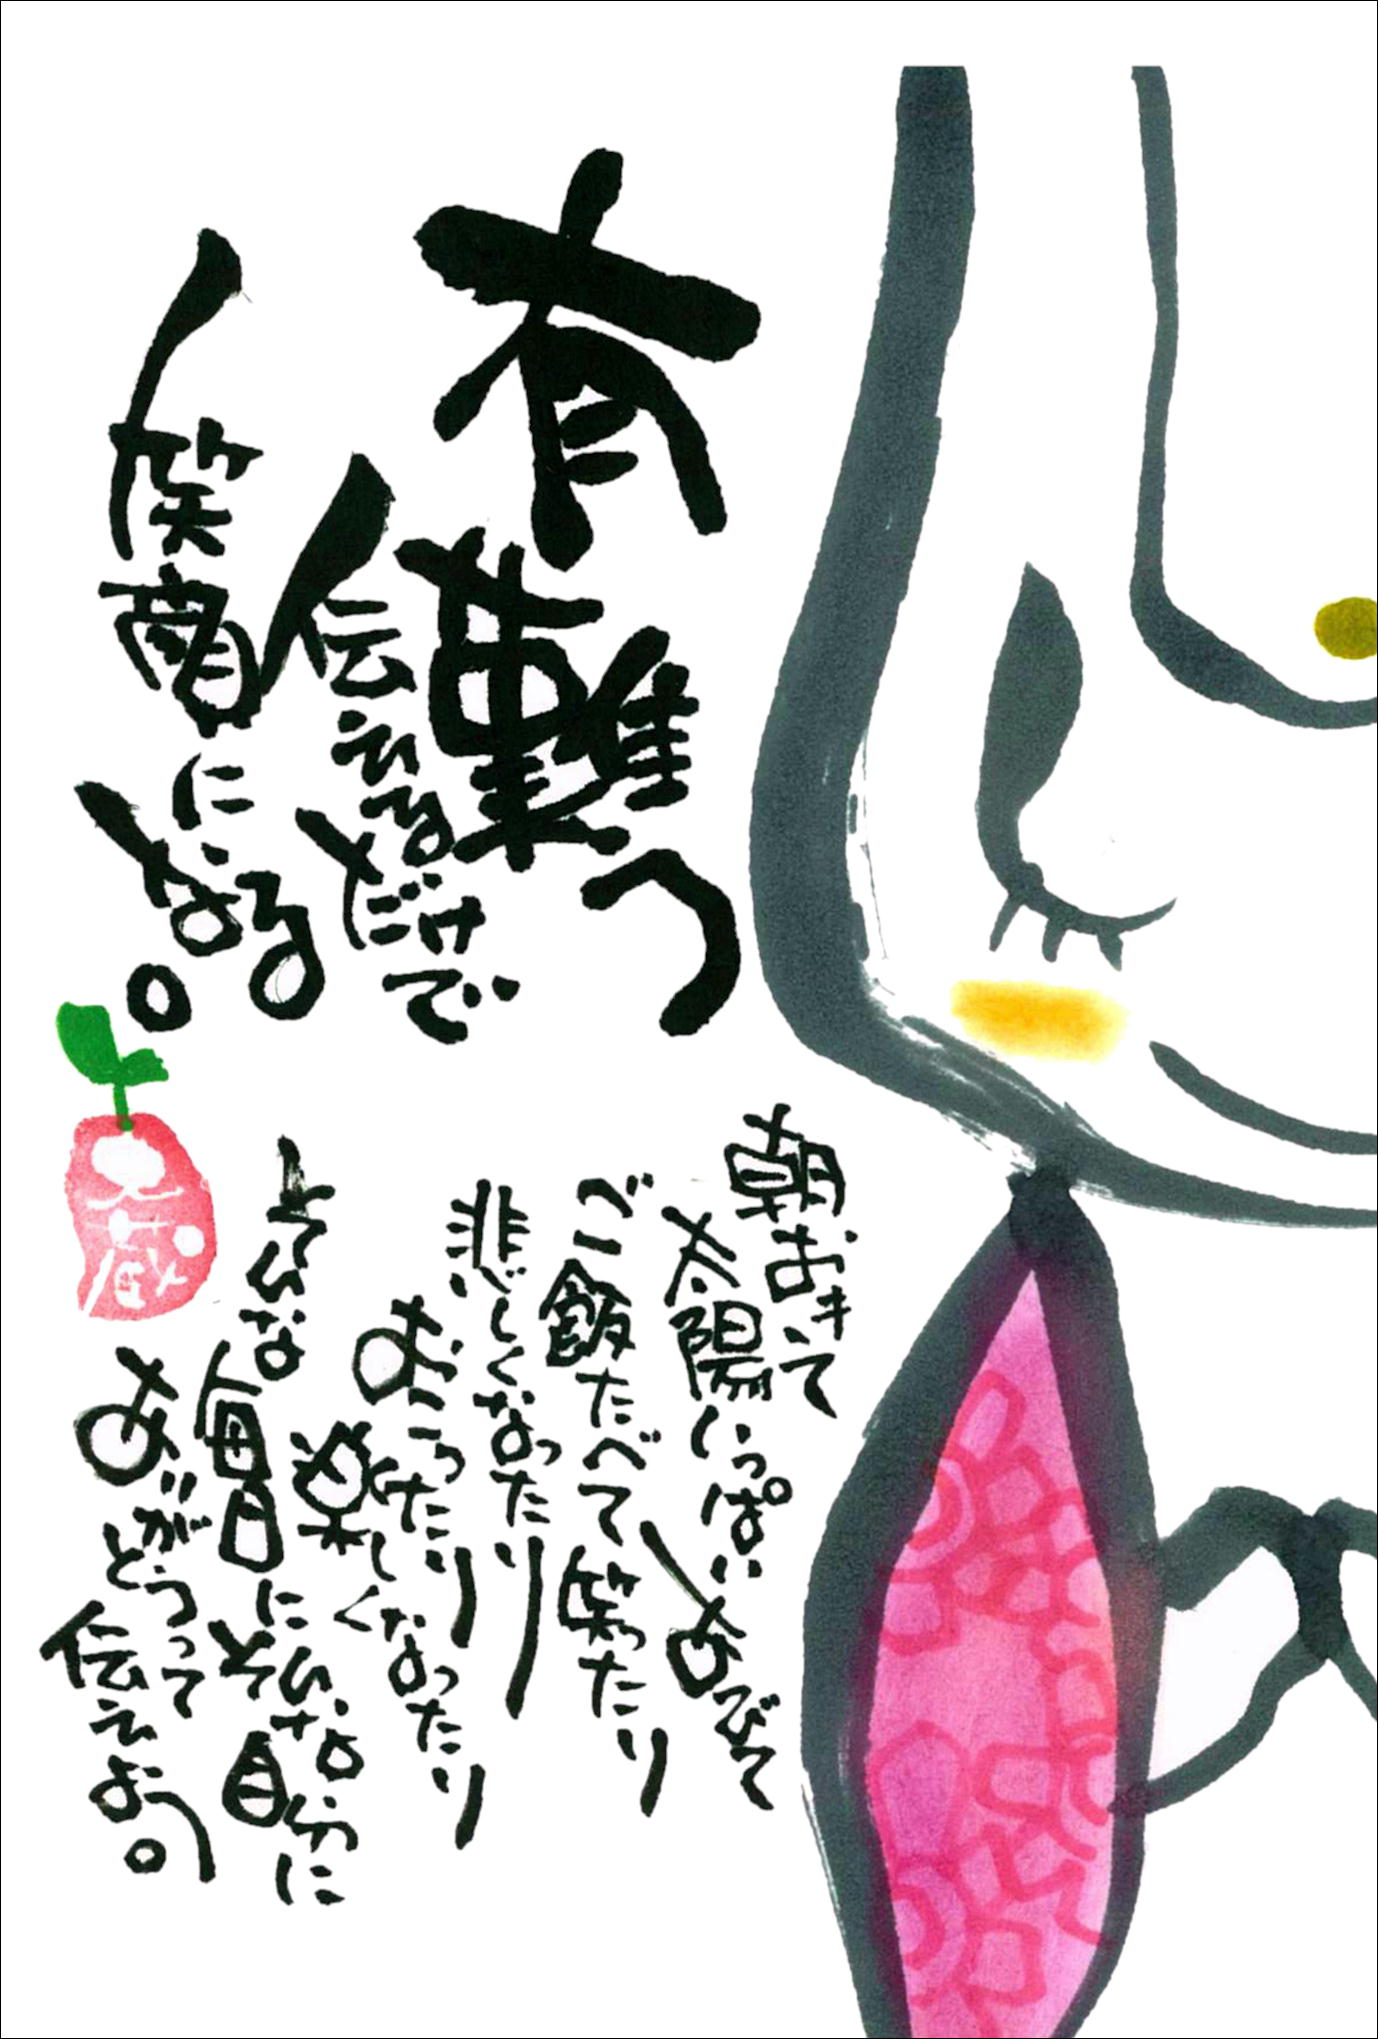 有難う
伝えるだけで
笑顔になるよ。
朝おきて
太陽いっぱいあびて
ご飯たべて笑ったり
悲しくなったり
おこったり
楽しくなったり
そんな
毎日にそんな自分に
ありがとうって
伝えよう。